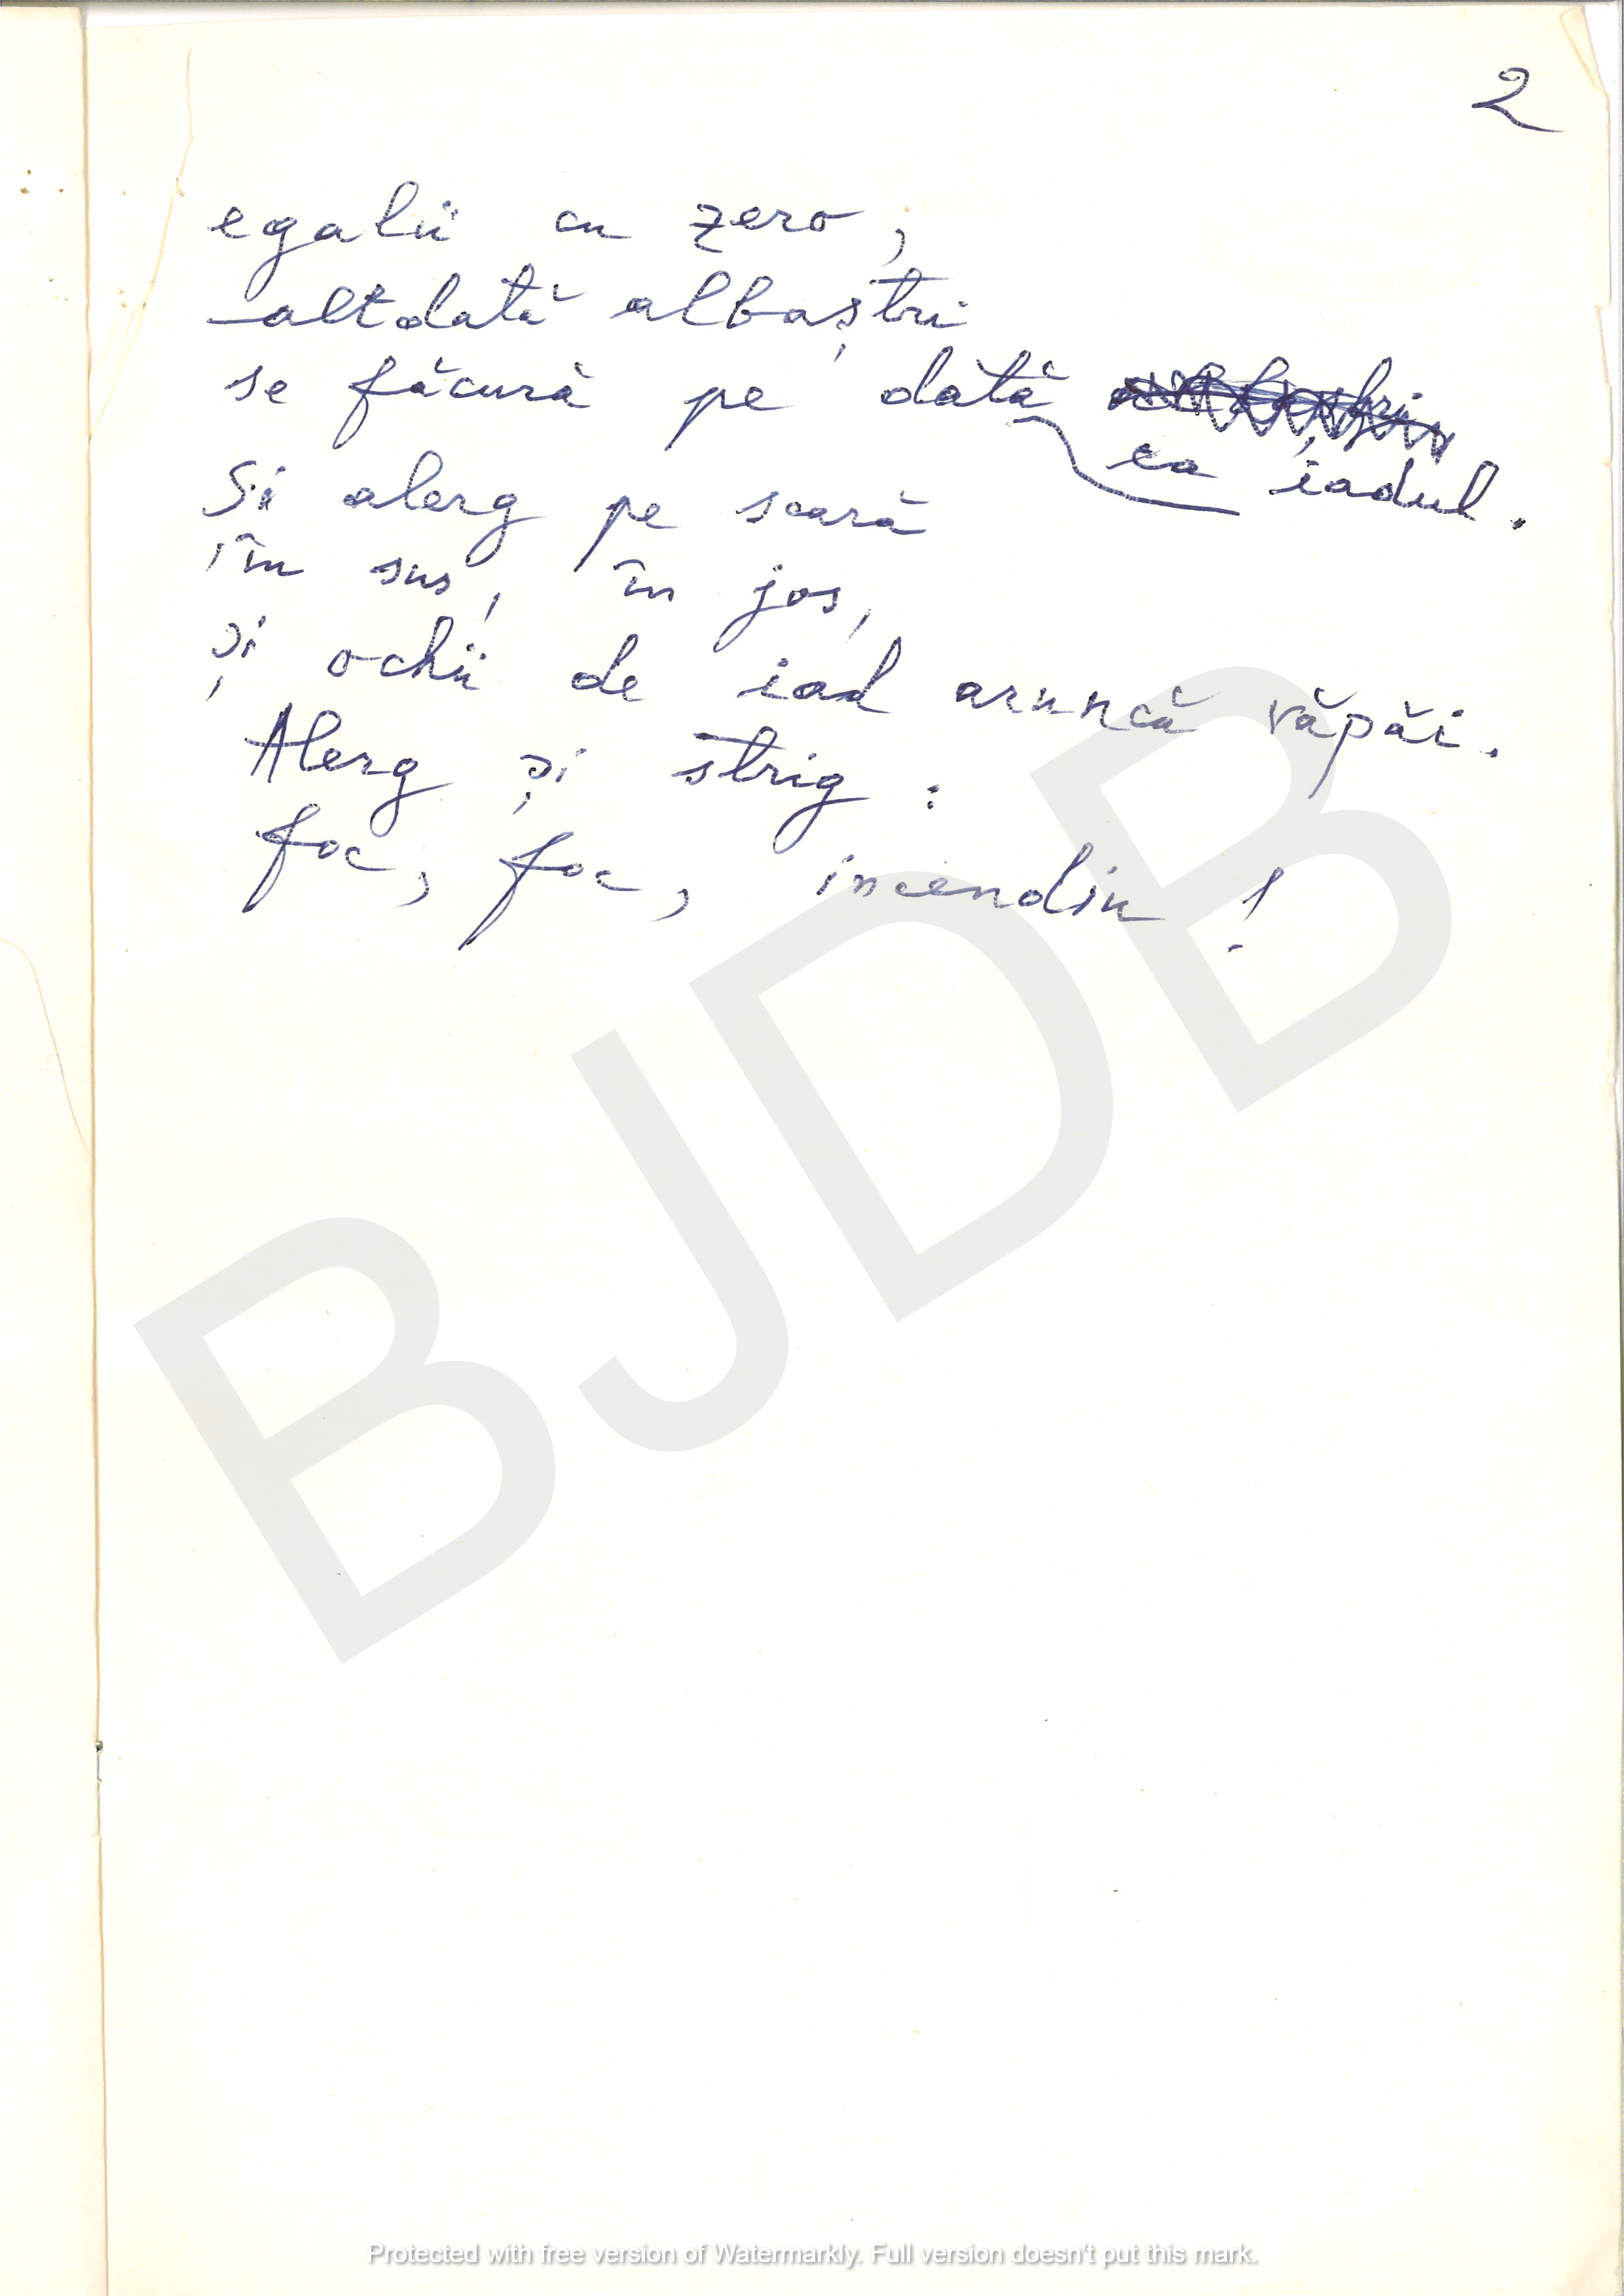 2
egalii cu zero,
altdată albaștri
se făcură pe dată albaștri
ca iadul.
Si alerg pe scară
în sus, în jos,
și ochii de iad aruncă văpăi.
Alerg și strig:
foc, foc, incendiu!
BJDB
Protected with free version of Watermarkly. Full version doesn't put this mark.